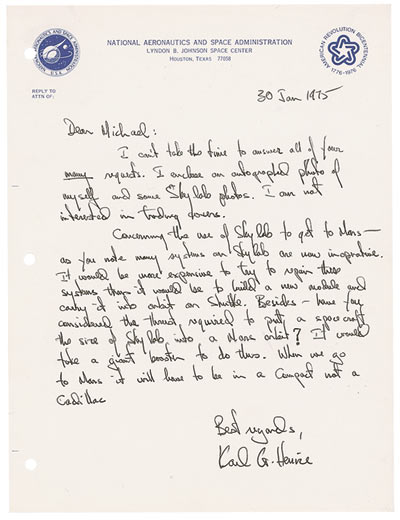 NATIONAL AERONAUTICS AND SPACE ADMINISTRATION
LYNDON B. JOHNSON SPACE CENTER
HOUSTON, TEXAS 77058
NATIONAL AERONAUTICS AND SPACE ADMINISTRATION
U.S.A.
AMERICAN REVOLUTION BICENTENNIAL
1776-1976
REPLY TO
ATTN OF:
30 Jan 1975
Dear Michael:
I can't take the time to answer all of your
many requests. I enclose an autographed photo of
myself and some Skylab photos. I am not
interested in trading covers.
Concerning the use of Skylab to get to Mars —
as you note many systems on Skylab are now inoperative.
It would be more expensive to try to repair these
systems than it would be to build a new module and
carry it into orbit on Shuttle. Besides — have you
considered the thrust required to put a spacecraft
the size of Skylab into a Mars orbit? It would
take a giant booster to do this. When we go
to Mars it will have to be in a Compact not a
Cadillac
Best regards,
Karl G. Henize